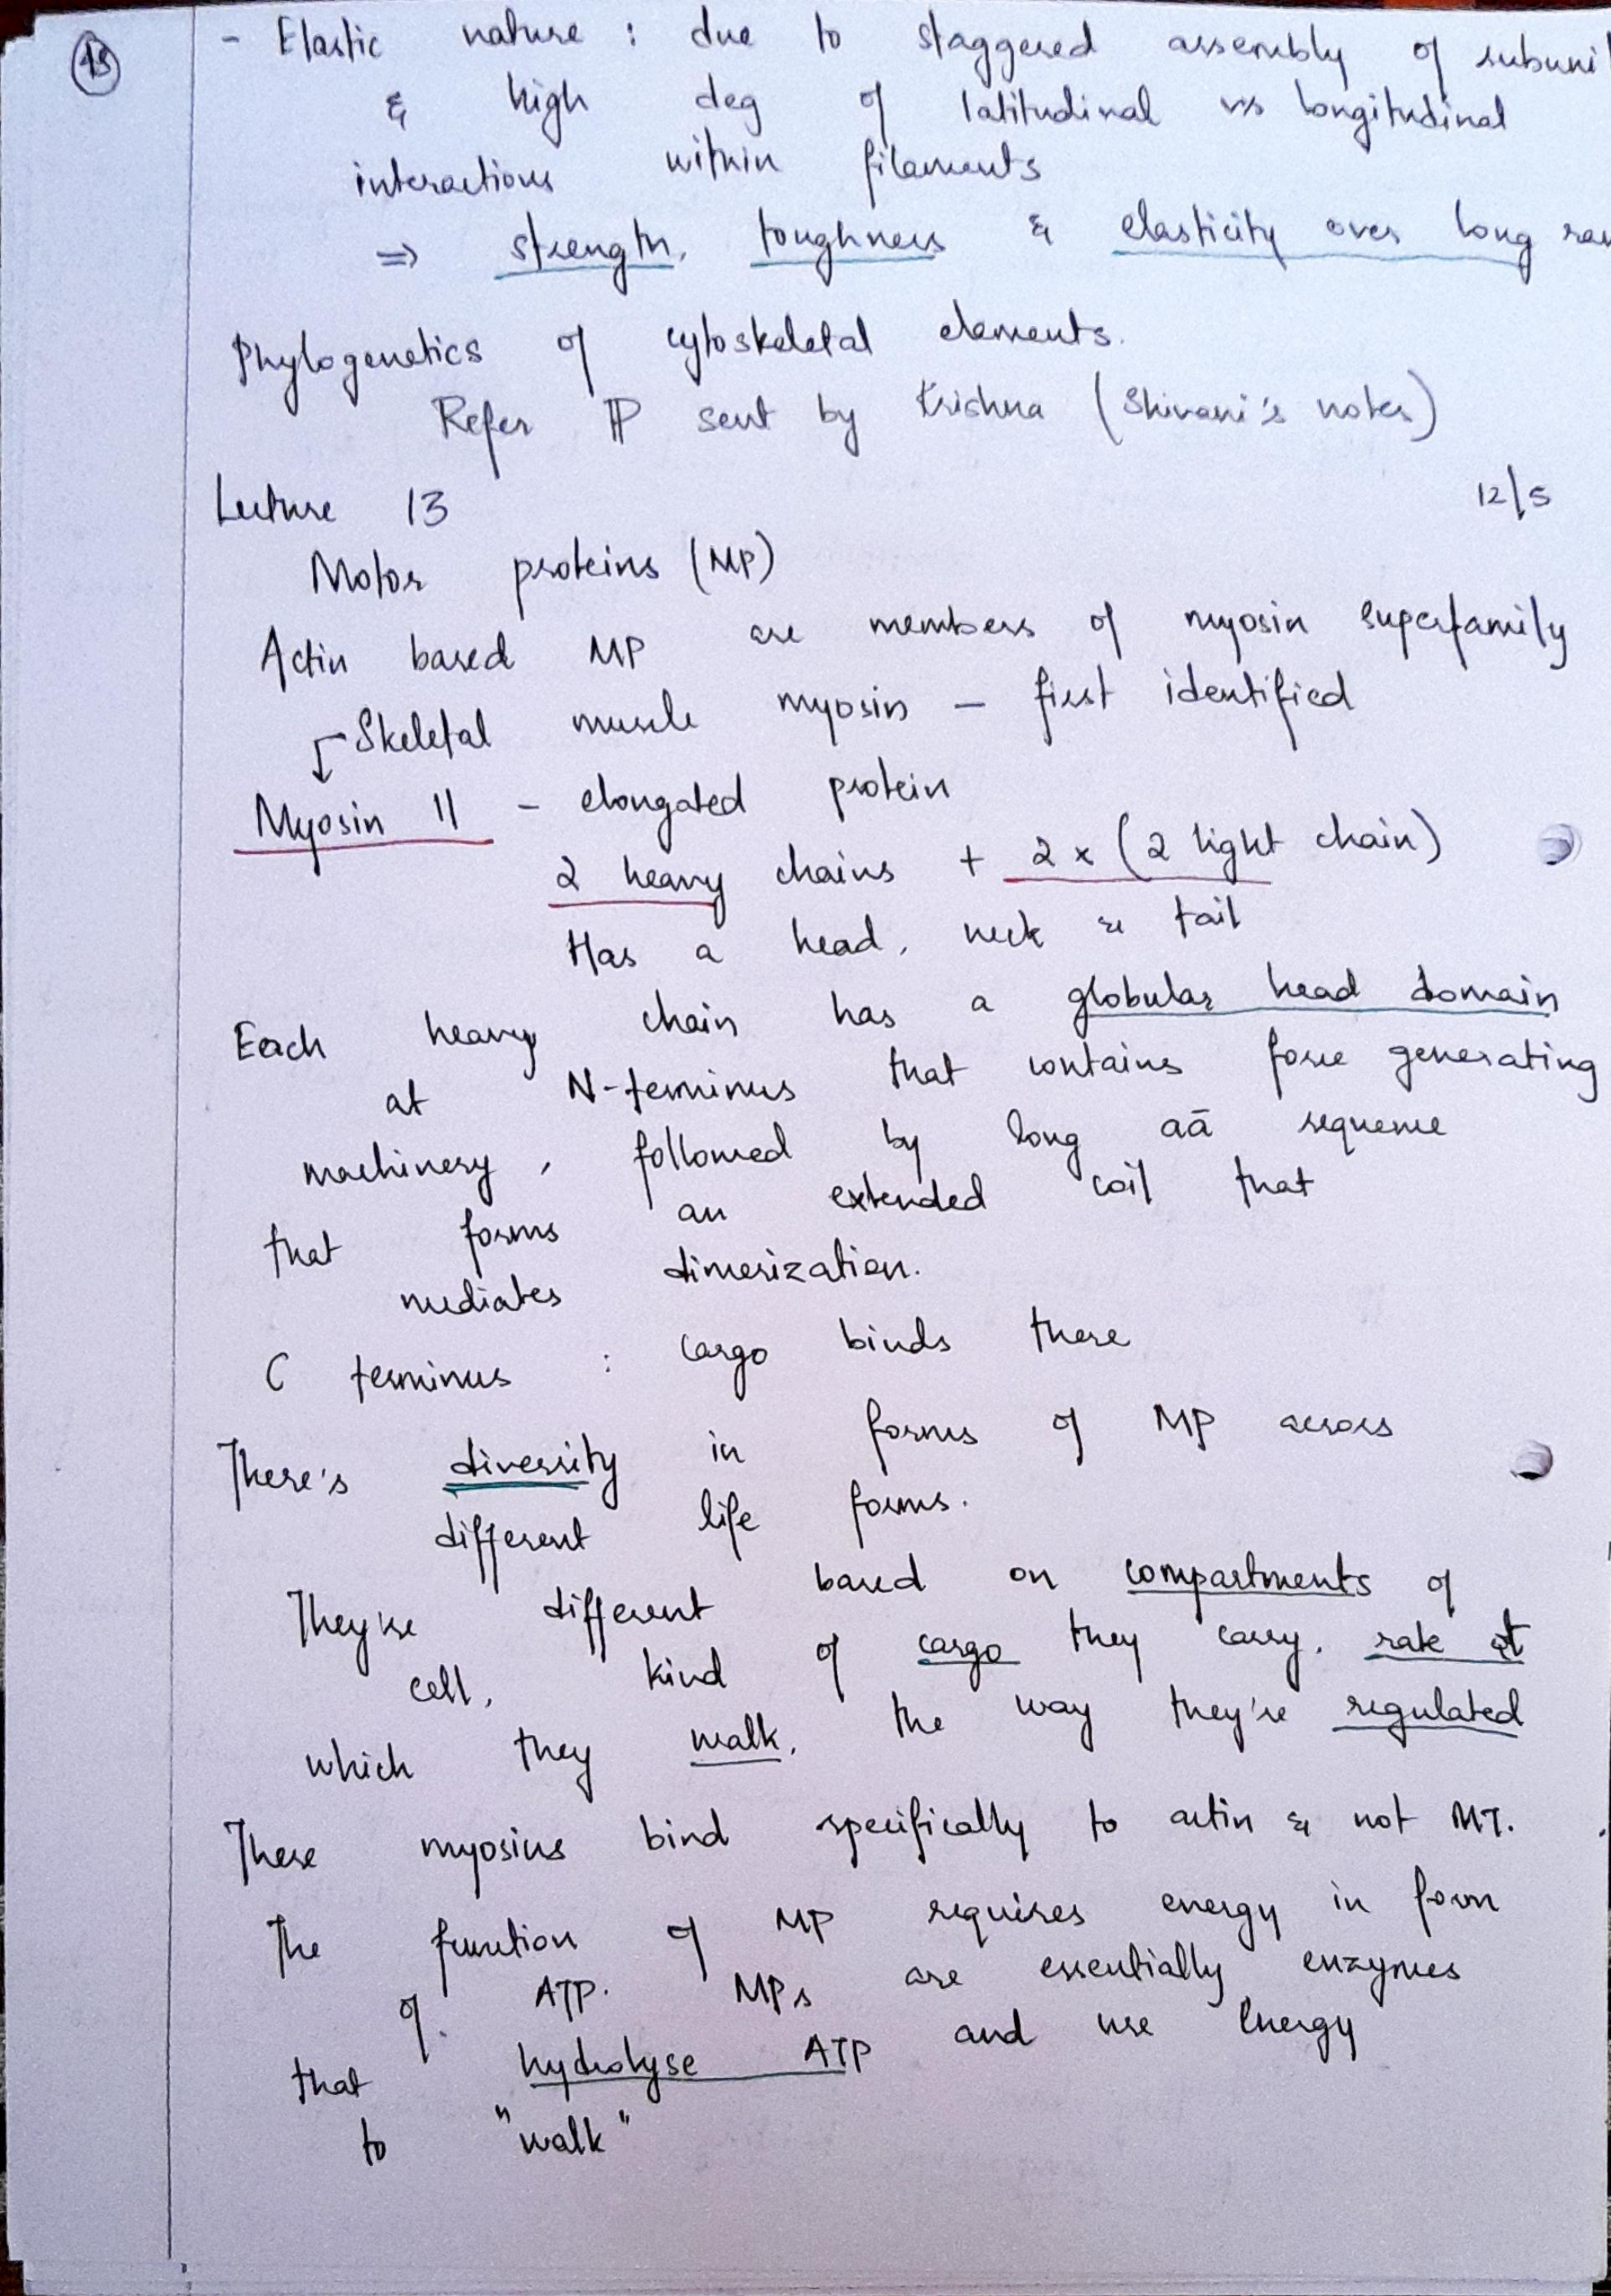 45
- Elastic nature : due to staggered assembly of subuni
& high deg of latitudinal v/s longitudinal
interactions within filaments
⇒ strength, toughness & elasticity over long ran
Phylogenetics of cytoskeletal elements.
Refer sent by Krishna (Shivani's notes)
Lecture 13 12/5
Motor proteins (MP)
Actin based MP are members of myosin superfamily
Skeletal muscle myosin – first identified
Myosin II - elongated protein
2 heavy chains + 2 x (2 light chain)
Has a head, neck & tail
Each heavy chain has a globular head domain
at N-terminus that contains force generating
machinery, followed by long aā sequence
that forms an extended coil that
mediates dimerization.
C terminus : cargo binds there
There's diversity in forms of MP across
different life forms.
They're different based on compartments of
cell, kind of cargo they carry, rate at
which they walk, the way they're regulated
These myosins bind specifically to actin & not MT.
The function of MP requires energy in form
of ATP. MPs are essentially enzymes
that hydrolyse ATP and use energy
to "walk"